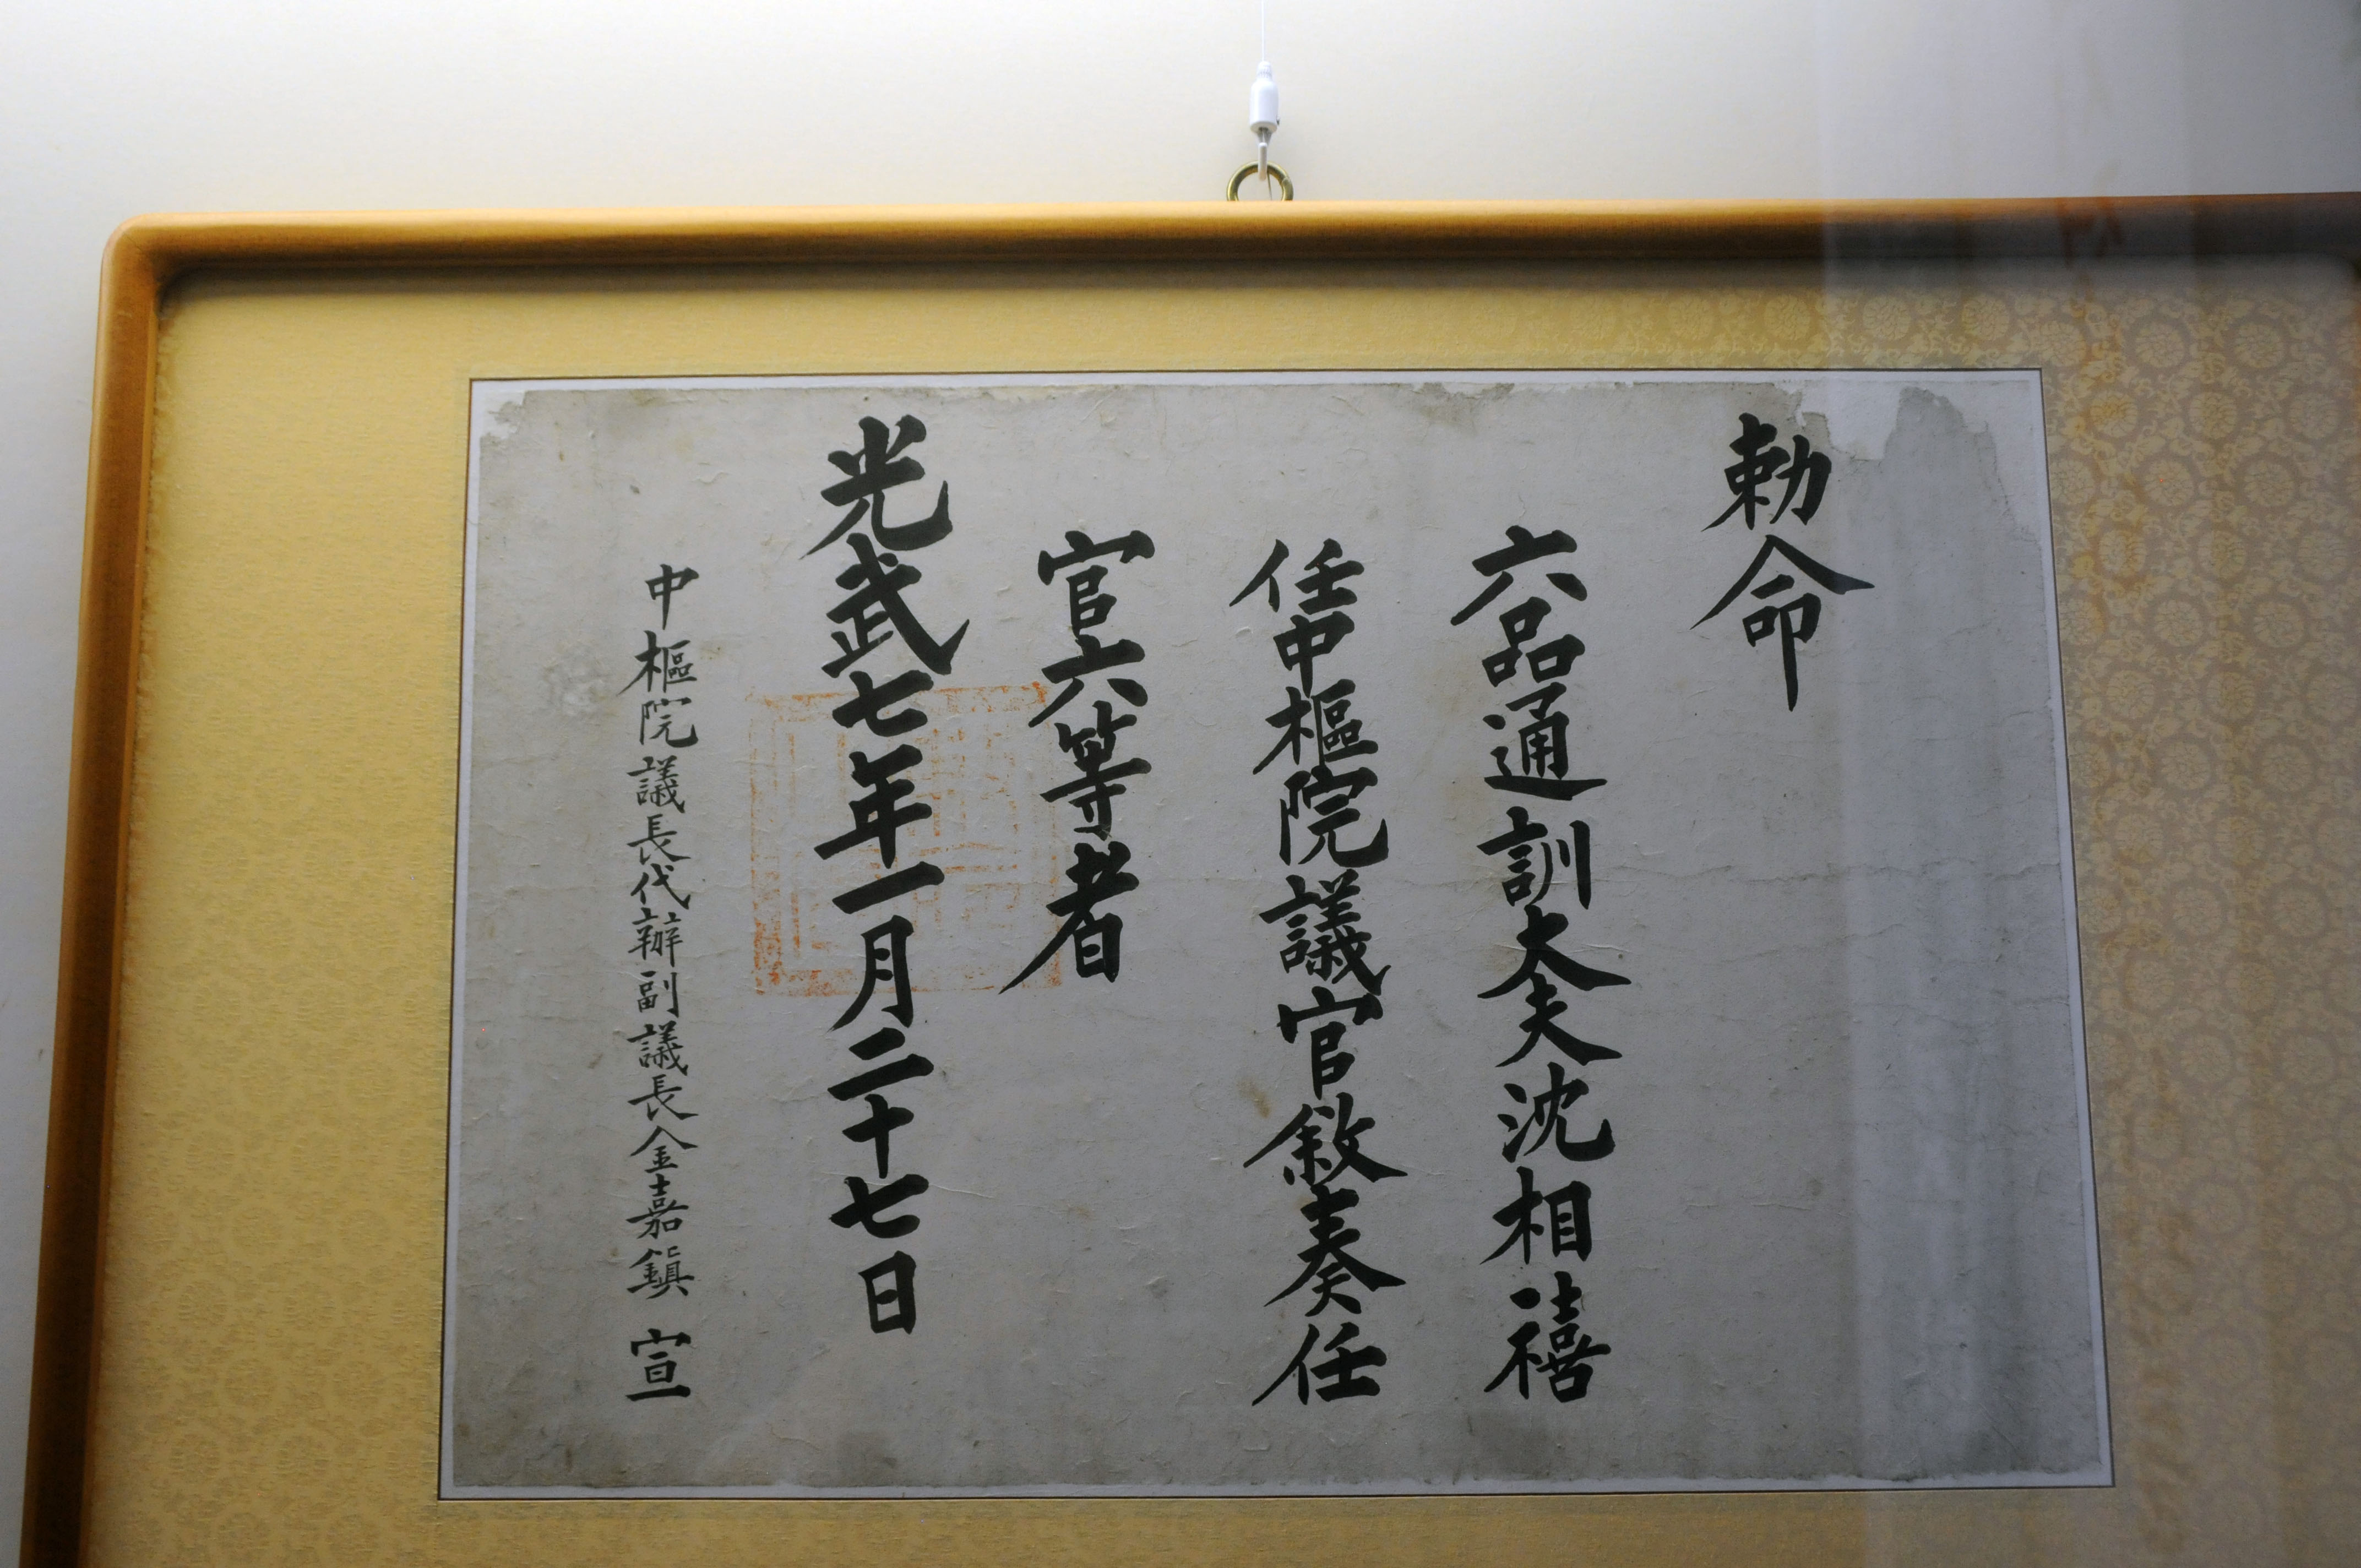 勅命
六品通訓大夫沈相禧
任中樞院議官敘奏任
官六等者
光武七年一月二十七日
中樞院議長代辦副議長金嘉鎭 宣